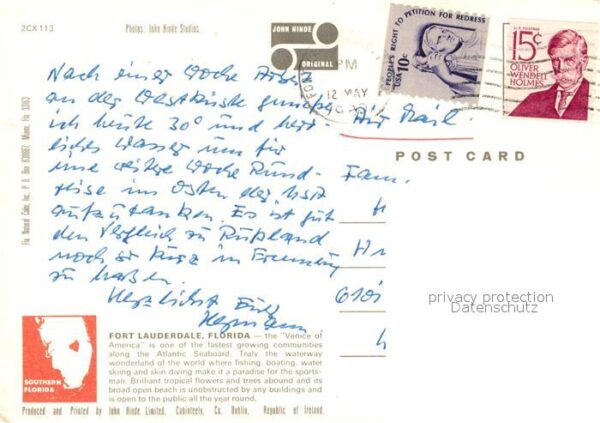 2CX113
Photos: John Hinde Studios
JOHN HINDE
ORIGINAL
PM
12 MAY
PEOPLE'S RIGHT TO PETITION FOR REDRESS
USA 10c
15¢
OLIVER
WENDELL
HOLMES
Air Mail.
POST CARD
Nach einer Woche Arbeit
an der Westküste
ich heute 30° und herr-
liches Wasser um für
eine weitere Woche Rund-
reise im Osten der
aufzutanken. Es ist gut
den Vergleich zu Rußland
noch so kurz in Erinnerung
zu haben.
Herzlichst Euer
Hermann
Fam.
privacy protection
Datenschutz
SOUTHERN
FLORIDA
FORT LAUDERDALE, FLORIDA — the "Venice of
America" is one of the fastest growing communities
along the Atlantic Seaboard. Truly the waterway
wonderland of the world where fishing, boating, water
skiing and skin diving make it a paradise for the sports-
man. Brilliant tropical flowers and trees abound and its
broad open beach is unobstructed by any buildings and
is open to the public all the year round.
Produced and Printed by John Hinde Limited, Cabinteely, Co. Dublin, Republic of Ireland.